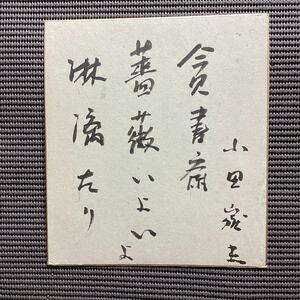 小田嶽夫
貧書斎
薔薇いよいよ
淋漓たり